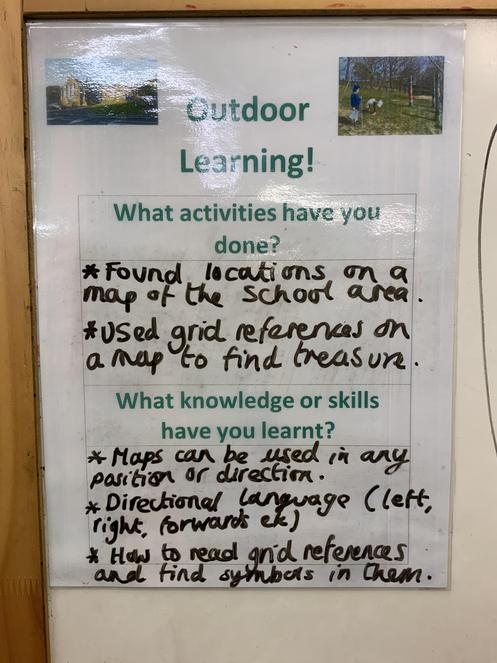 Outdoor
Learning!
What activities have you
done?
* Found locations on a
map of the school area.
* Used grid references on
a map to find treasure.
What knowledge or skills
have you learnt?
* Maps can be used in any
position or direction.
* Directional language (left,
right, forwards etc)
* How to read grid references
and find symbols in them.